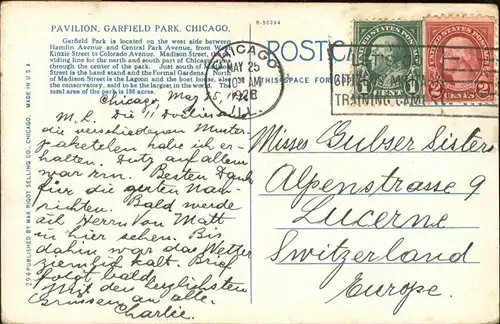 PAVILION, GARFIELD PARK, CHICAGO.
Garfield Park is located on the west side between
Hamlin Avenue and Central Park Avenue, from West
Kinzie Street to Colorado Avenue. Madison Street, the
viding line for the north and south part of Chicago,
through the center of the park. Just south of
Street is the band stand and the Formal Gardens. North
of Madison Street is the Lagoon and the boat house, also
the conservatory, said to be the largest in the world. The
total area of the park is 188 acres.
R-50294
POSTC
THIS SPACE FOR
CHICAGO
MAY 25
10 AM
1928
ILL.
TRAINING CAMP
1 CENT 1
2 CENTS 2
MADE IN U.S.A.
204 PUBLISHED BY MAX RIGOT SELLING CO., CHICAGO.
Chicago, May 25, 1928
M. L. Die
die verschiedenen Muster
paketchen habe ich er-
halten.
war Besten Dank
für die guten Nach
richten. Bald werde
ich Herrn Von Matt
in hier sehen. Bis
dahin das Wetter
ziemlich kalt. Brief
folgt bald.
Mit den herzlichsten
Grüssen an alle.
Charlie.
Misses Gubser Sisters
Alpenstrasse 9
Lucerne
Switzerland
Europe.